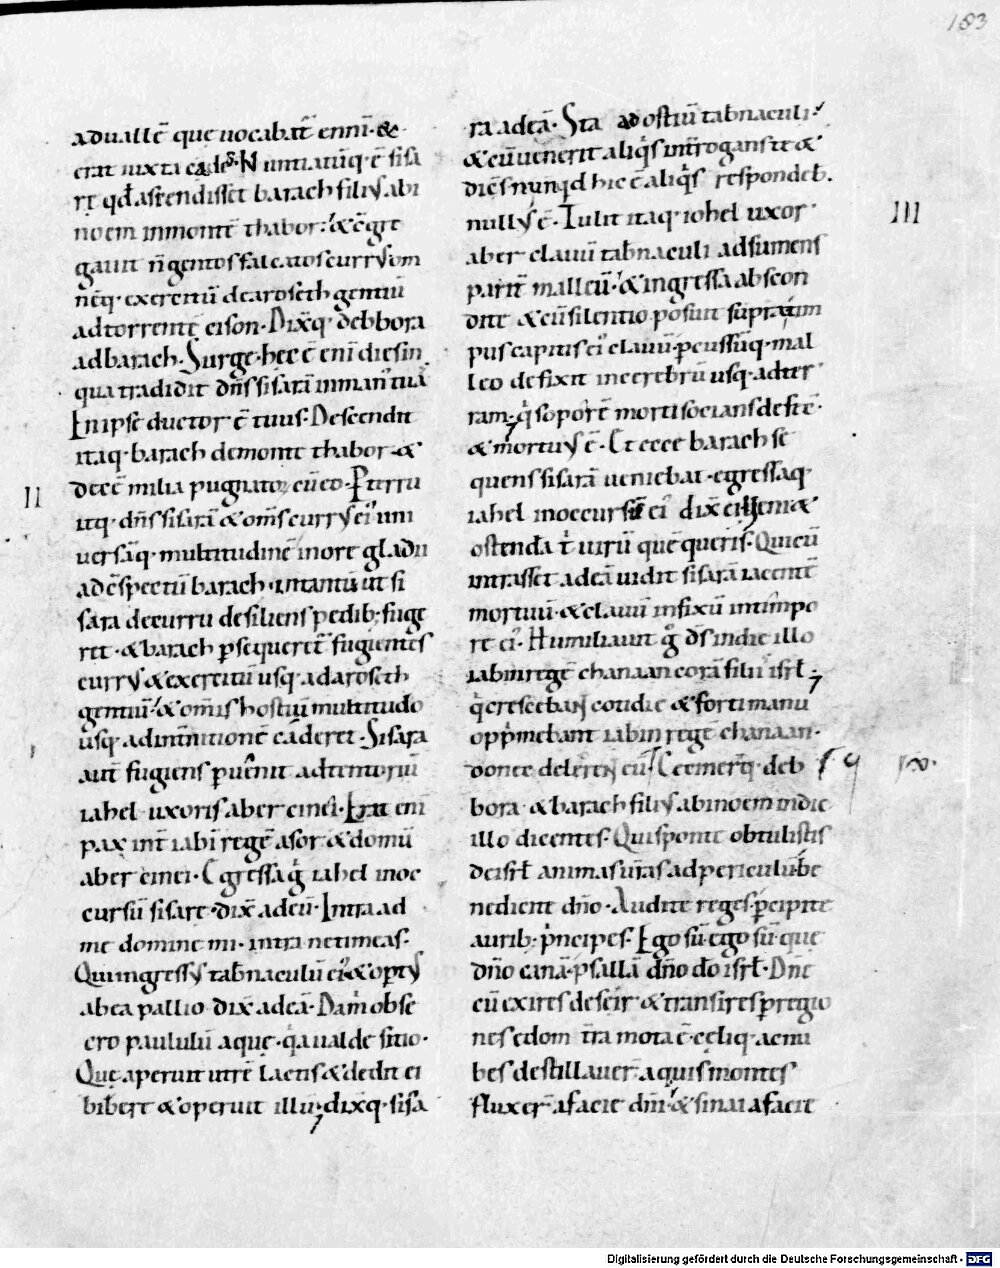 183
aduallē que uocabat̄ ennī· &
erat iuxta cades· Nuntiatūq· ē sisa
re qd̄ ascendisset barach filiꝰ abi
noem inmontē thabor· & c̄gre
gauit n̄gentos falcatos currꝰ om
nēq· exercitū dearoseth gentiū
adtorrentē cison· Dix̄q· debbora
adbarach· Surge· hec ē enī dies in
qua tradidit dn̄s sisarā inmanꝰ tuā
En ipse ductor ē tuus· Descendit
itaq· barach demonte thabor· &
II
decē milia pugnatoꝝ cū eo· Perterru
itq· dn̄s sisarā & om̄s currꝰ eiꝰ uni
uersāq· multitudinē inore gladii
adc̄spectū barach· intantū ut si
sara decurru desiliens pedib; fuge
ret· & barach ꝑsequeret̄ fugientes
currꝰ & exercitū usq· adaroseth
gentiū· & omnis hostiū multitudo
usq· adint̄nitionē caderet· Sisara
aut̄ fugiens ꝑuenit adtentoriū
iahel uxoris aber cinei· Erat enī
pax int̄ iabī regē asor & domū
aber cinei· Egressa gͥ iahel inoc
cursū sisare· dix̄ adeū· Intra ad
me domine mi· intra netimeas·
Qui ingressꝰ tab̄naculū eiꝰ & optꝰ
abea pallio dix̄ adeā· Da m̄ obse
cro paululū aque· qͥa ualde sitio·
Que aperuit utrē lactis & dedit ei
bibere & operuit illū· dix̄q· sisa
ra adeā· Sta ad ostiū tab̄naculi·
& cū uenerit aliqͥs int̄rogans te &
dicēs nunqͥd hic ē aliqͥs respondeb̄·
nullꝰ ē· Tulit itaq· iahel uxor
III
aber clauū tab̄naculi adsumens
parit̄ malleū· & ingressa abscon
dite & cū silentio posuit supra tim
pus capitis eiꝰ clauū· ꝑcussūq· mal
leo defixit incerebrū usq· adter
ram· qͥ soporē morti socians defec̄·
& mortuꝰ ē· Et ecce barach se
quens sisarā ueniebat· egressaq·
iahel inoccursū eiꝰ dix̄ ei Ueni &
ostendā t̄ uirū quē queris· Qui cū
intrasset adeā uidit sisarā iacentē
mortuū· & clauū infixū intimpo
re eiꝰ· Humiliauit gͦ ds̄ indie illo
iabin regē chanaan corā filiis isrł·
qͥ crescebant cotidie & forti manu
oppͥmebant iabin regē chanaan·
donec delerent eū· Cecinerq· deb
bora & barach filiꝰ abinoem indie
illo dicentes· Qui sponte obtulistis
deisrł animas ur̄as adpericulū be
nedicite dn̄o· Audite reges· ꝑcipite
aurib; pͥncipes· Ego sū ego sū que
dn̄o canā· psallā dn̄o do isrł· Dn̄e
cū exires deseir & transires ꝑregio
nes edom tr̄a mota ē· celiq· ac nu
bes destillauer̄ aquis montes
fluxer̄ afacie dn̄i· & sinai afacie
Digitalisierung gefördert durch die Deutsche Forschungsgemeinschaft - DFG